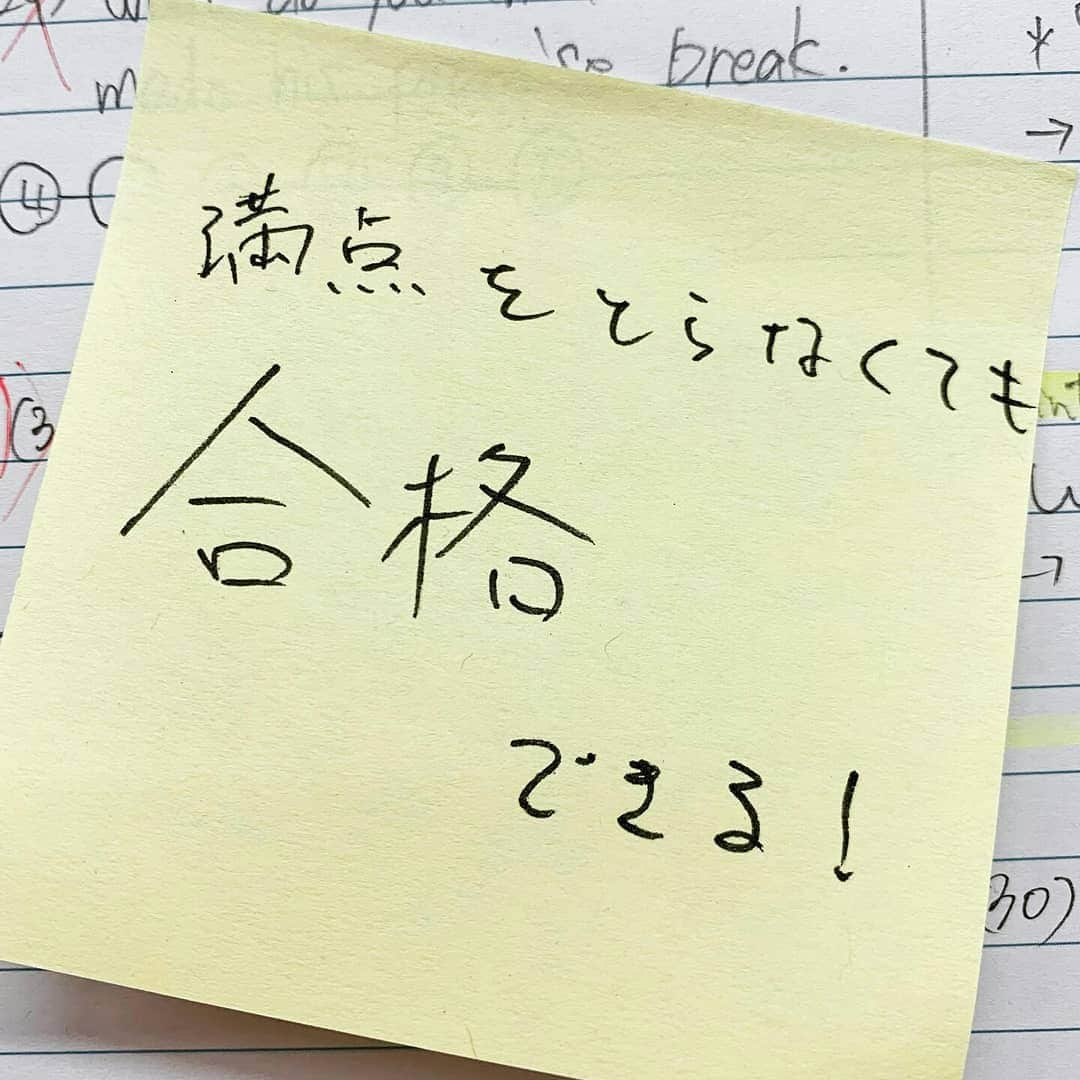 break.
*
→
④
満点をとらなくても
(3
合格
→
できる!
(30)